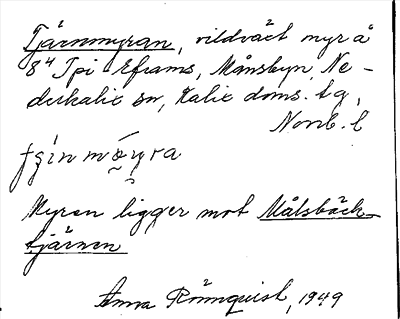 Tjärnmyran, vildväxt myr å
8⁴ Tpi-Eframs, Månsbyn, Ne-
derkalix sn, Kalix doms. tg,
Norrb. l
Myran ligger mot Målsbäck-
tjärnen
Anna Rönnquist, 1949